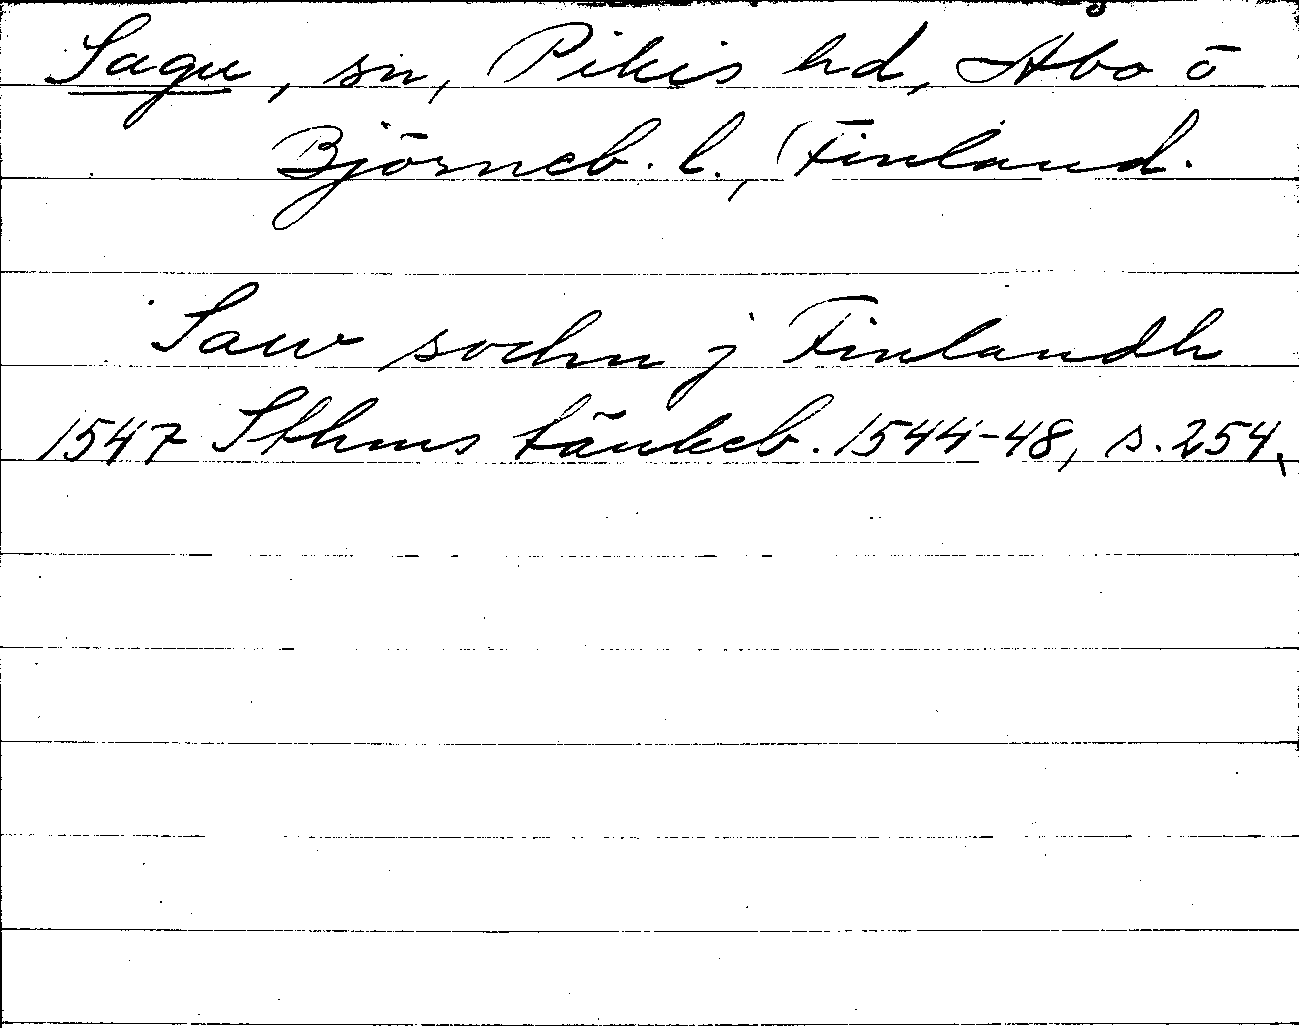 Sagu, sn, Pikis hd, Åbo o
Björneb. l., Finland.
Saw sochn j Finlandh
1547 Sthms tänkeb. 1544-48, s. 254.